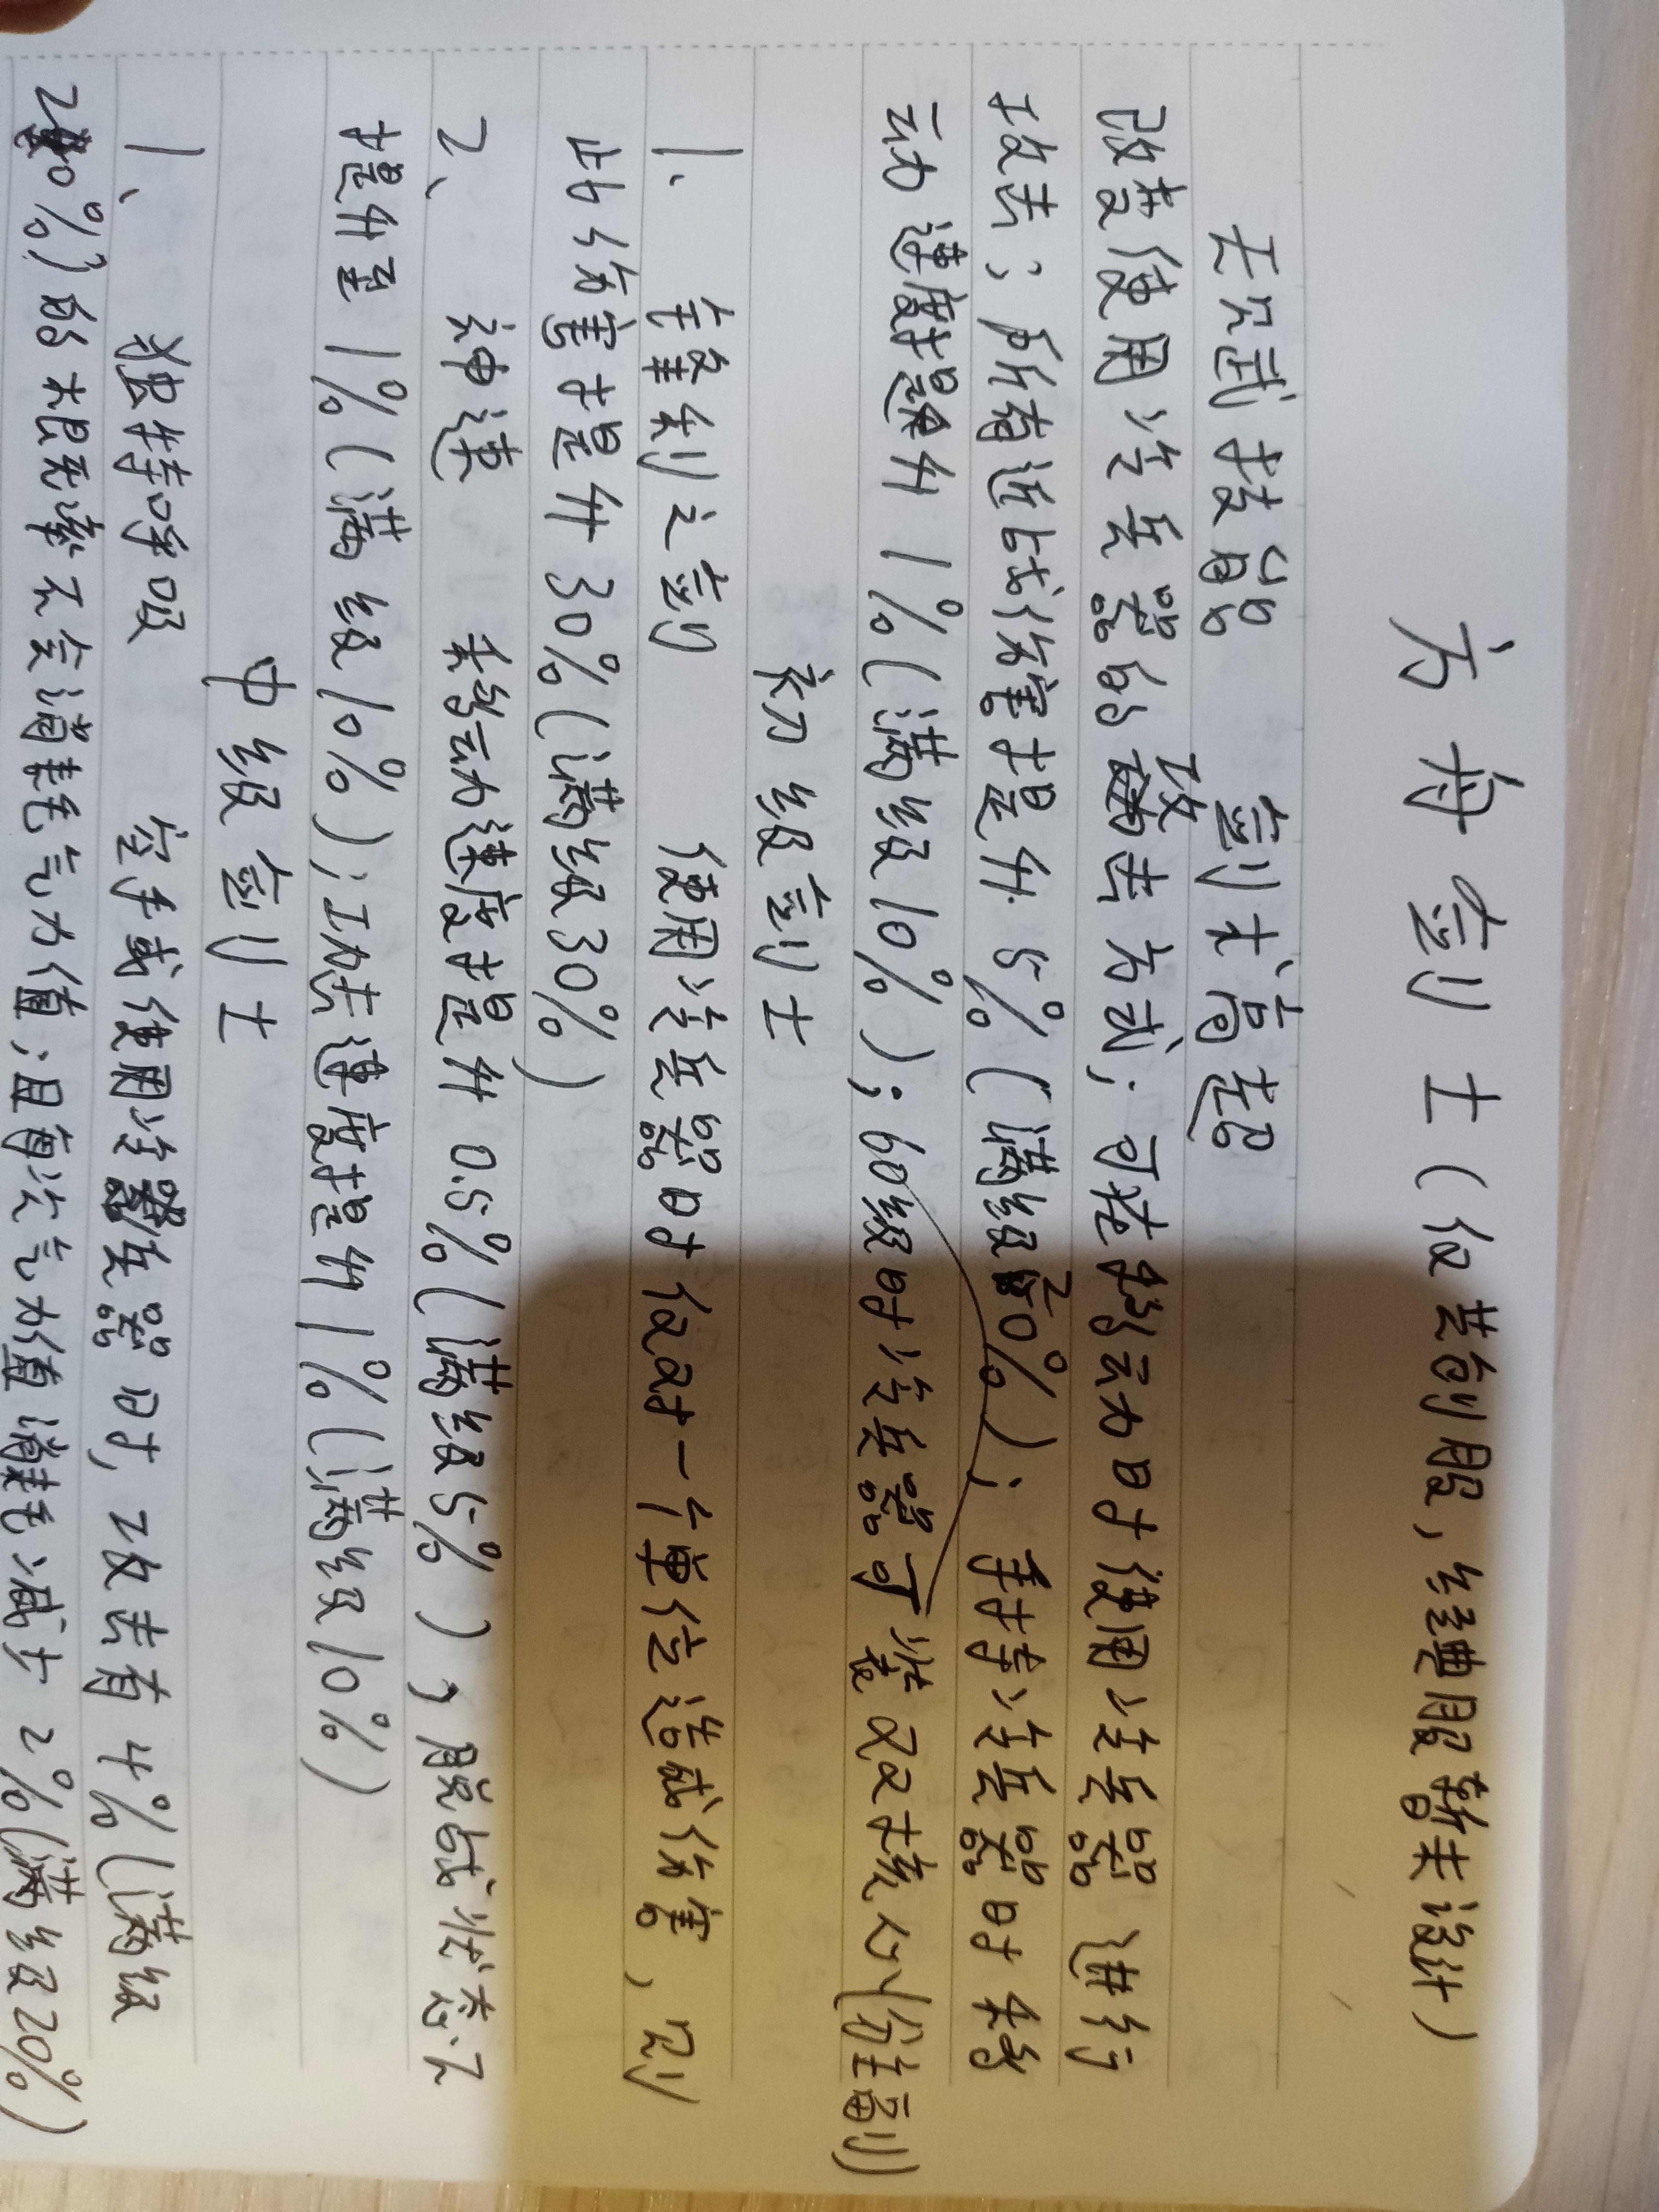 方舟剑士(仅芸创服,继电服暂未设计)
王见武技能 剑术高超
改变使用冷兵器的攻击方式;可在移动时使用冷兵器进行
攻击;所有近战伤害提升5%(满级20%);手持冷兵器时移
动速度提升1%(满级10%);60级时冷兵器可装双持心(分主副)
初级剑士
1、锋利之剑 使用冷兵器时仅对一个单位造成伤害,则
此伤害提升30%(满级30%)
2、神速 移动速度提升0.5%(满级5%),脱战状态下
提升至1%(满级10%);攻击速度提升1%(满级10%)
中级剑士
1、独特呼吸 空手或使用冷兵器时,攻击有4%(满级
20%)的概率不会消耗气力值;且每次气力值消耗减少2%(满级20%)